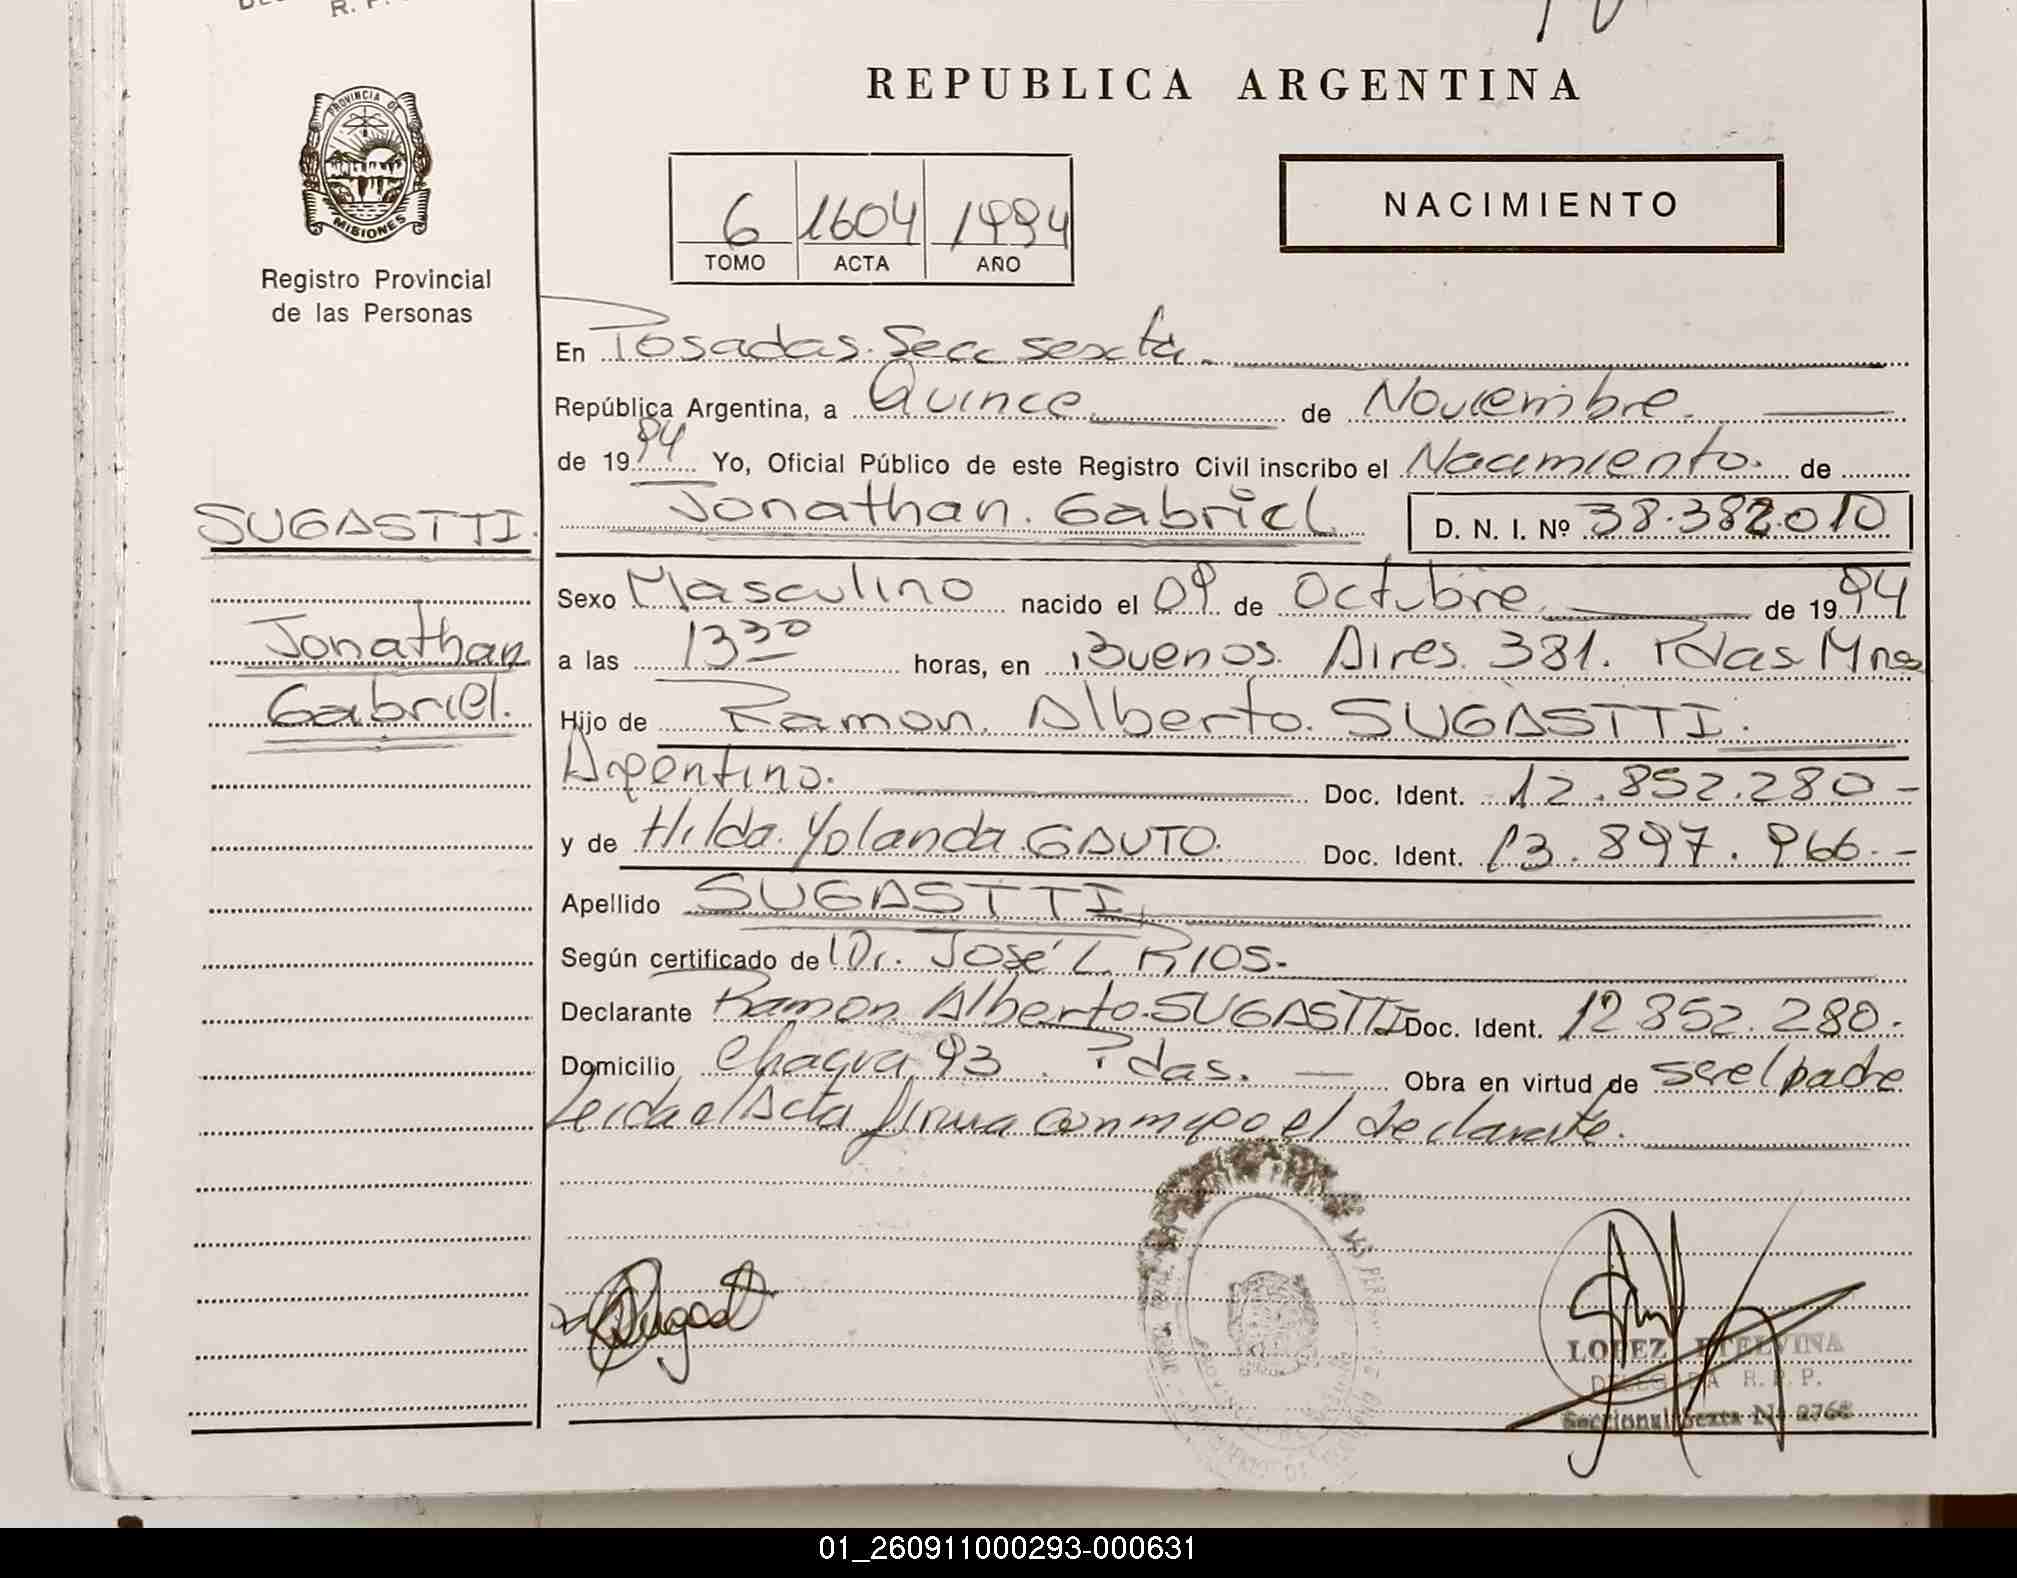 R. P.
PROVINCIA DE
MISIONES
Registro Provincial
de las Personas
REPUBLICA ARGENTINA
NACIMIENTO
6 1604 1994
TOMO ACTA AÑO
En Posadas. Secc sexta.
República Argentina, a Quince de Noviembre.
de 1994 Yo, Oficial Público de este Registro Civil inscribo el Nacimiento. de
SUGASTTI. Jonathan. Gabriel D. N. I. Nº 38.382.010
Sexo Masculino nacido el 09 de Octubre de 1994
Jonathan a las 13 30 horas, en Buenos. Aires. 381. Pdas Mnes
Gabriel. Hijo de Ramon. Alberto. SUGASTTI.
Argentino. Doc. Ident. 12.852.280-
y de Hilda. Yolanda GAUTO. Doc. Ident. 13.897.966.-
Apellido SUGASTTI
Según certificado de Dr. José L RIOS.
Declarante Ramon Alberto. SUGASTTI Doc. Ident. 12852.280.
Domicilio Chacra 93. Pdas. Obra en virtud de ser el padre
Leida el Acta firma conmigo el declarante.
LOPEZ ETELVINA
DELEGADA R. P. P.
Seccional Sexta Nº 2768
01_260911000293-000631